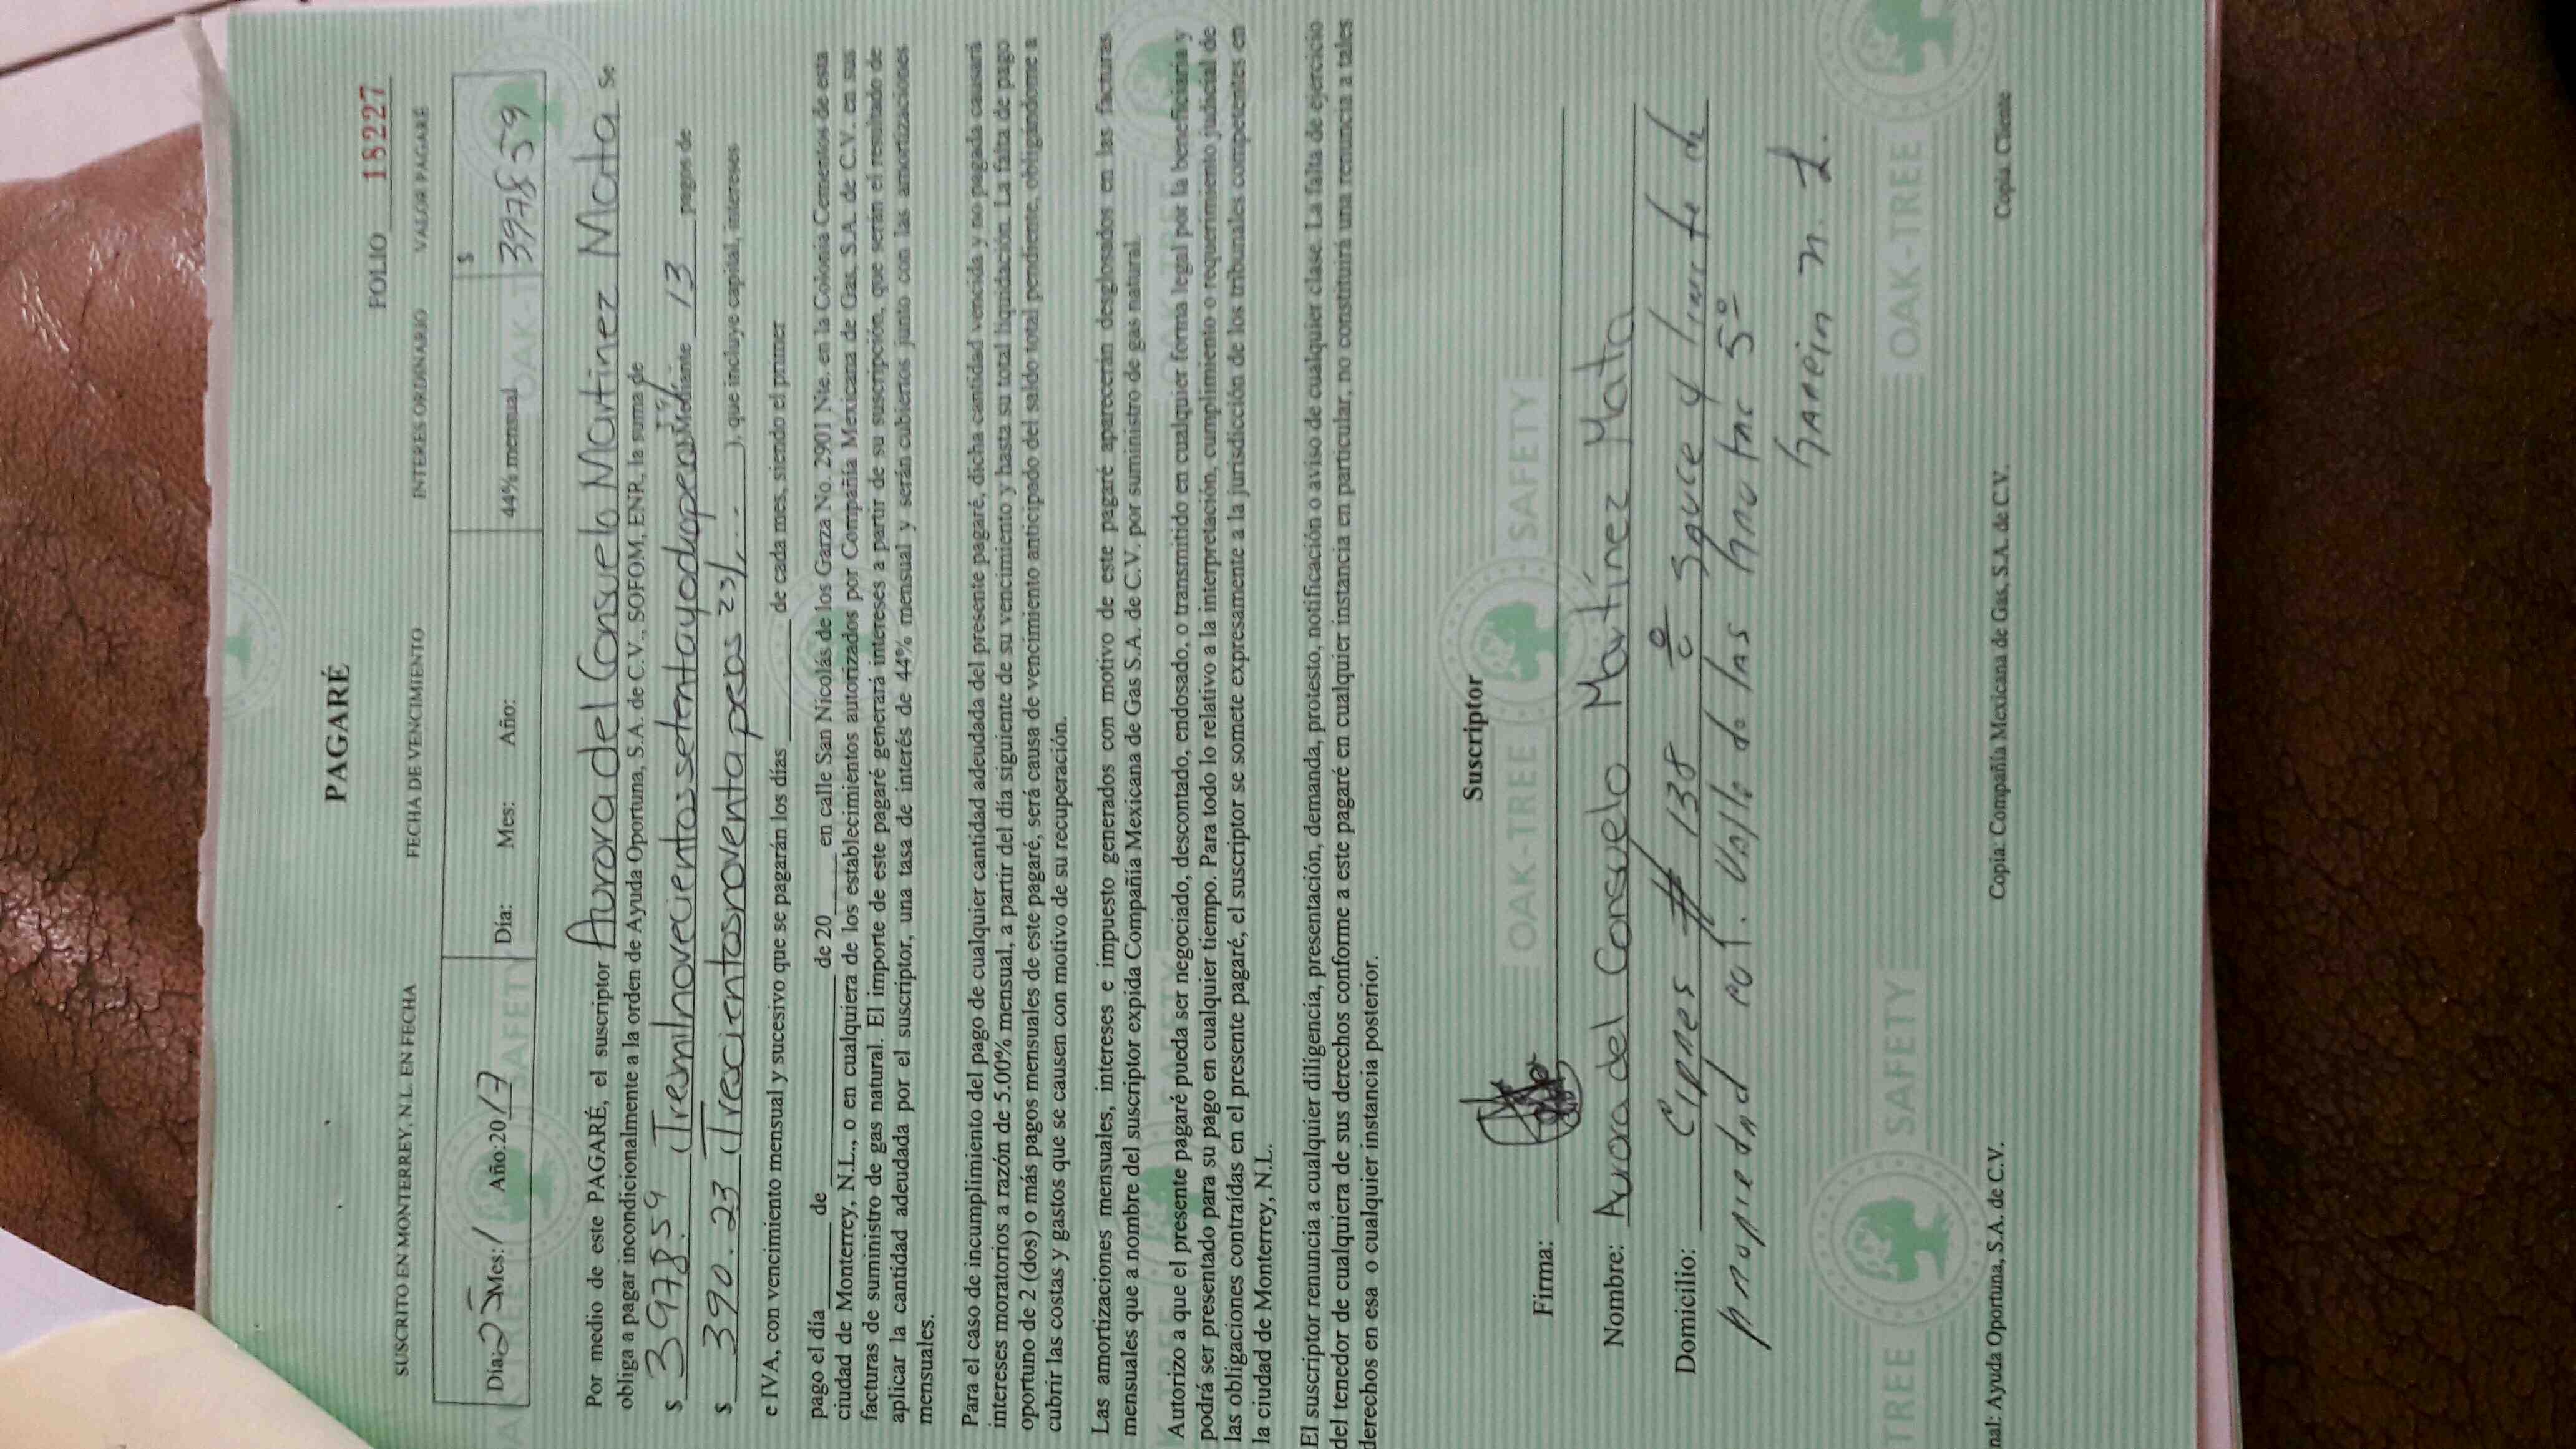 PAGARÉ
FOLIO 18227
SUSCRITO EN MONTERREY, N.L. EN FECHA FECHA DE VENCIMIENTO INTERES ORDINARIO VALOR PAGARÉ
Día: 25 Mes: 1 Año:2017 Día: Mes: Año: 44% mensual $ 3978.59
Por medio de este PAGARÉ, el suscriptor Aurora del Consuelo Martinez Mata se
obliga a pagar incondicionalmente a la orden de Ayuda Oportuna, S.A. de C.V., SOFOM, ENR, la suma de
$ 3978.59 (Tresmilnovecientossetentayochopesos 59/ Mediante 13 pagos de
$ 390.23 (Trescientosnoventapesos 23/... ), que incluye capital, intereses
e IVA, con vencimiento mensual y sucesivo que se pagarán los días de cada mes, siendo el primer
pago el día de de 20 en calle San Nicolás de los Garza No. 2901 Nte. en la Colonia Cementos de esta
ciudad de Monterrey, N.L., o en cualquiera de los establecimientos autorizados por Compañía Mexicana de Gas, S.A. de C.V. en sus
facturas de suministro de gas natural. El importe de este pagaré generará intereses a partir de su suscripción, que serán el resultado de
aplicar la cantidad adeudada por el suscriptor, una tasa de interés de 44% mensual y serán cubiertos junto con las amortizaciones
mensuales.
Para el caso de incumplimiento del pago de cualquier cantidad adeudada del presente pagaré, dicha cantidad vencida y no pagada causará
intereses moratorios a razón de 5.00% mensual, a partir del día siguiente de su vencimiento y hasta su total liquidación. La falta de pago
oportuno de 2 (dos) o más pagos mensuales de este pagaré, será causa de vencimiento anticipado del saldo total pendiente, obligándome a
cubrir las costas y gastos que se causen con motivo de su recuperación.
Las amortizaciones mensuales, intereses e impuesto generados con motivo de este pagaré aparecerán desglosados en las facturas
mensuales que a nombre del suscriptor expida Compañía Mexicana de Gas S.A. de C.V. por suministro de gas natural.
Autorizo a que el presente pagaré pueda ser negociado, descontado, endosado, o transmitido en cualquier forma legal por la beneficiaria y
podrá ser presentado para su pago en cualquier tiempo. Para todo lo relativo a la interpretación, cumplimiento o requerimiento judicial de
las obligaciones contraídas en el presente pagaré, el suscriptor se somete expresamente a la jurisdicción de los tribunales competentes en
la ciudad de Monterrey, N.L.
El suscriptor renuncia a cualquier diligencia, presentación, demanda, protesto, notificación o aviso de cualquier clase. La falta de ejercicio
del tenedor de cualquiera de sus derechos conforme a este pagaré en cualquier instancia en particular, no constituirá una renuncia a tales
derechos en esa o cualquier instancia posterior.
Suscriptor
Firma:
Nombre: Aurora del Consuelo Martínez Mata
Domicilio: Cipres # 138 e Sauce y limite de
propiedad col. Valle de las 5º
Garcia N. L.
OAK-TREE SAFETY
OAK-TREE
TREE SAFETY
nal: Ayuda Oportuna, S.A. de C.V. Copia: Compañía Mexicana de Gas, S.A. de C.V. Copia: Cliente